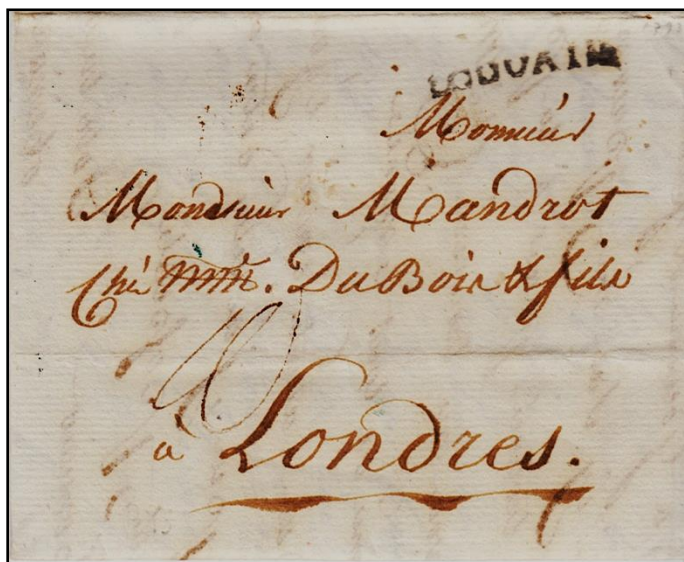 LOUVAIN
Monsieur
Monsieur Mandrot
Ché Mrs. DuBois & fils
à Londres.